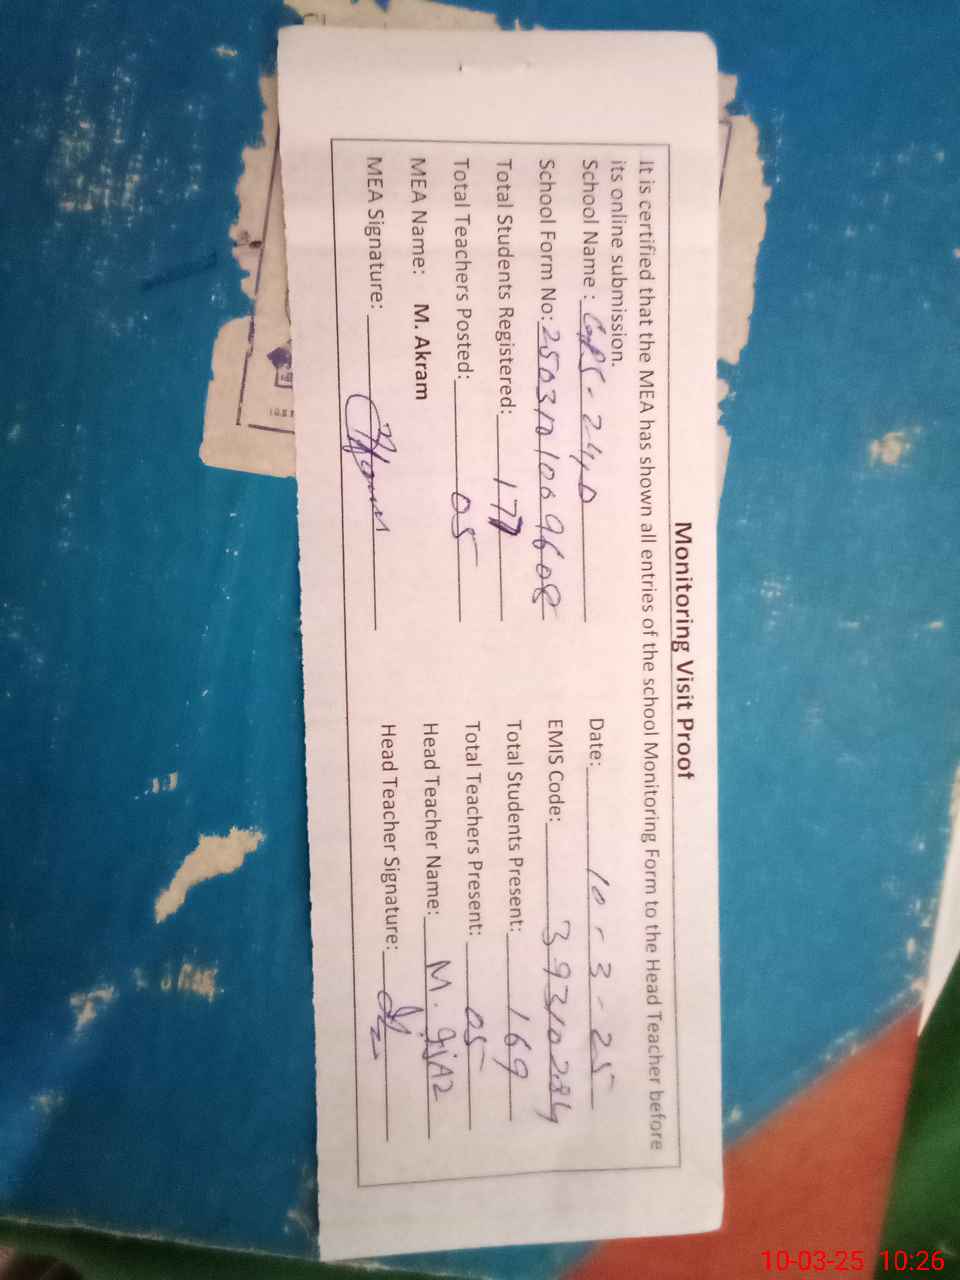 Monitoring Visit Proof
It is certified that the MEA has shown all entries of the school Monitoring Form to the Head Teacher before
its online submission.
School Name : GPS - 24/D Date: 10 - 3 - 25
School Form No: 250310 1069608 EMIS Code: 39310284
Total Students Registered: 177 Total Students Present: 169
Total Teachers Posted: 05 Total Teachers Present: 05
MEA Name: M. Akram Head Teacher Name: M. IjAz
MEA Signature: Head Teacher Signature:
10-03-25 10:26